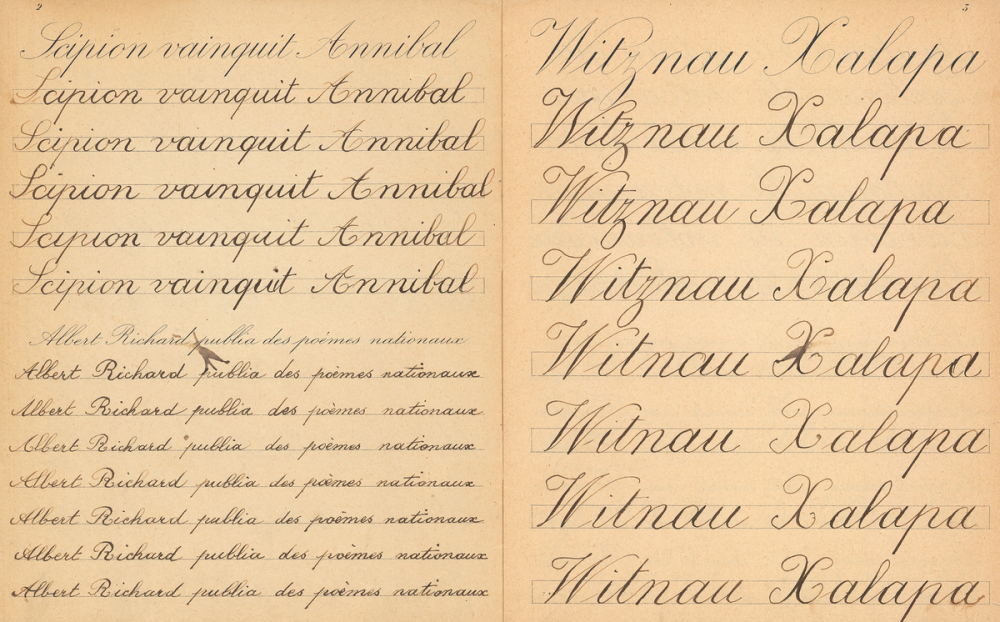 2
Scipion vainquit Annibal
Scipion vainquit Annibal
Scipion vainquit Annibal
Scipion vainquit Annibal
Scipion vainquit Annibal
Scipion vainquit Annibal
Albert Richard publia des poèmes nationaux
Albert Richard publia des poèmes nationaux
Albert Richard publia des poèmes nationaux
Albert Richard publia des poèmes nationaux
Albert Richard publia des poèmes nationaux
Albert Richard publia des poèmes nationaux
Albert Richard publia des poèmes nationaux
Albert Richard publia des poèmes nationaux
3
Witznau Xalapa
Witznau Xalapa
Witznau Xalapa
Witznau Xalapa
Witnau Xalapa
Witnau Xalapa
Witnau Xalapa
Witnau Xalapa